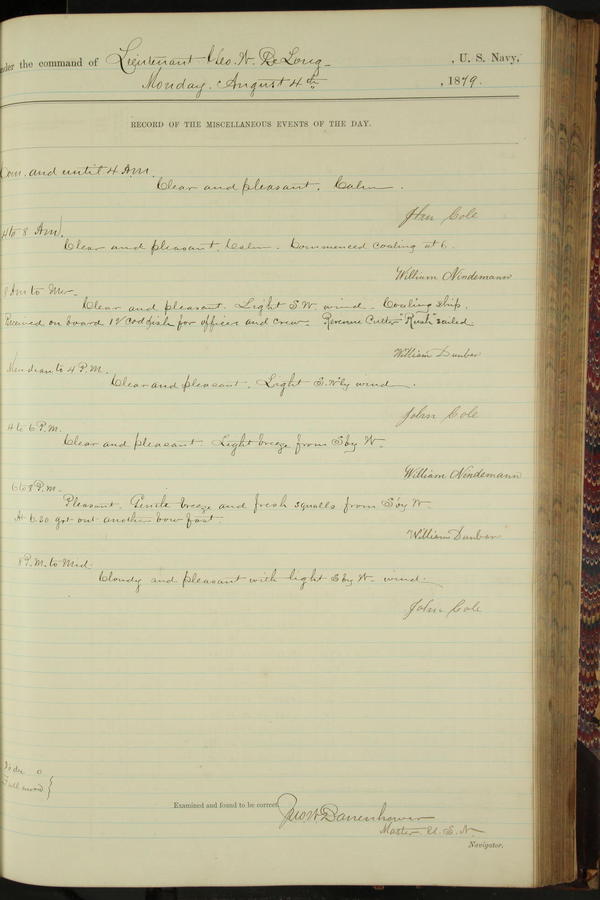 under the command of Lieutenant Geo. W. De Long , U. S. Navy,
Monday, August 4th , 1879.
RECORD OF THE MISCELLANEOUS EVENTS OF THE DAY.
Com. and until 4 A.M.
Clear and pleasant. Calm.
John Cole
4 to 8 A.M.
Clear and pleasant. Calm. Commenced coaling at 6.
William Nindemann
8 Am to Mer.
Clear and pleasant. Light S.W. wind. Coaling ship.
Received on board 12 codfish for officers and crew. Revenue Cutter "Rush" sailed.
William Dunbar
Meridian to 4 P.M.
Clear and pleasant. Light S.W'ly wind.
John Cole
4 to 6 P.M.
Clear and pleasant. Light breeze from S by W.
William Nindemann
6 to 8 P.M.
Pleasant. Gentle breeze and fresh squalls from S by W.
At 6.30 got out another bow fast.
William Dunbar
8 P.M. to Mid.
Cloudy and pleasant with light S by W. wind.
John Cole
Examined and found to be correct
Jno W Danenhower
Master U.S.N.
Navigator.